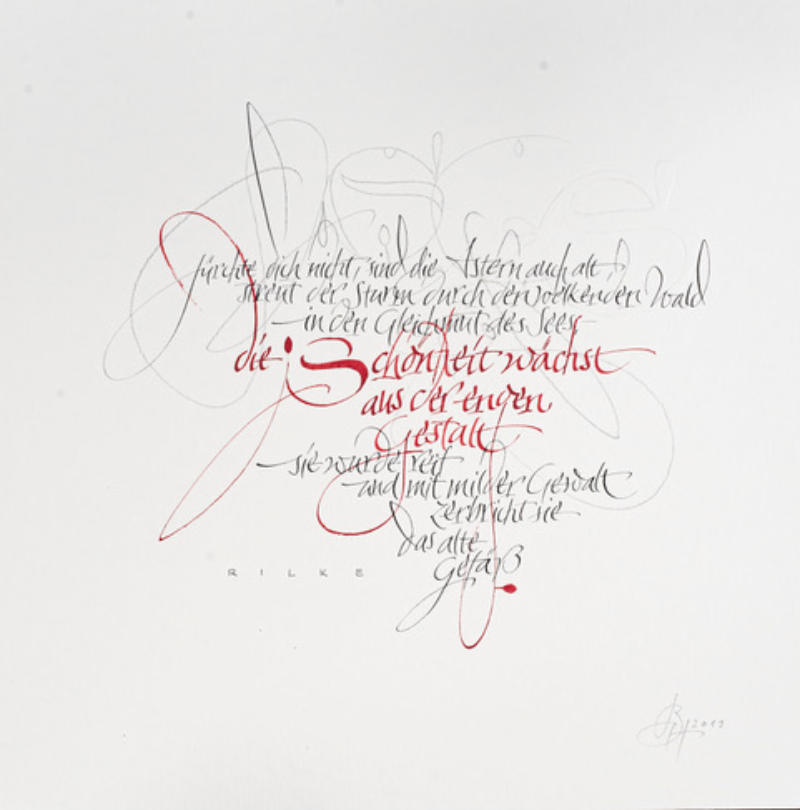 fürchte dich nicht, sind die Astern auch alt,
streut der Sturm durch den welkenden Wald
in den Gleichmut des Sees
die Schönheit wächst
aus der engen
Gestalt
sie wurde reif
und mit milder Gewalt
zerbricht sie
das alte
Gefäß
RILKE
2019